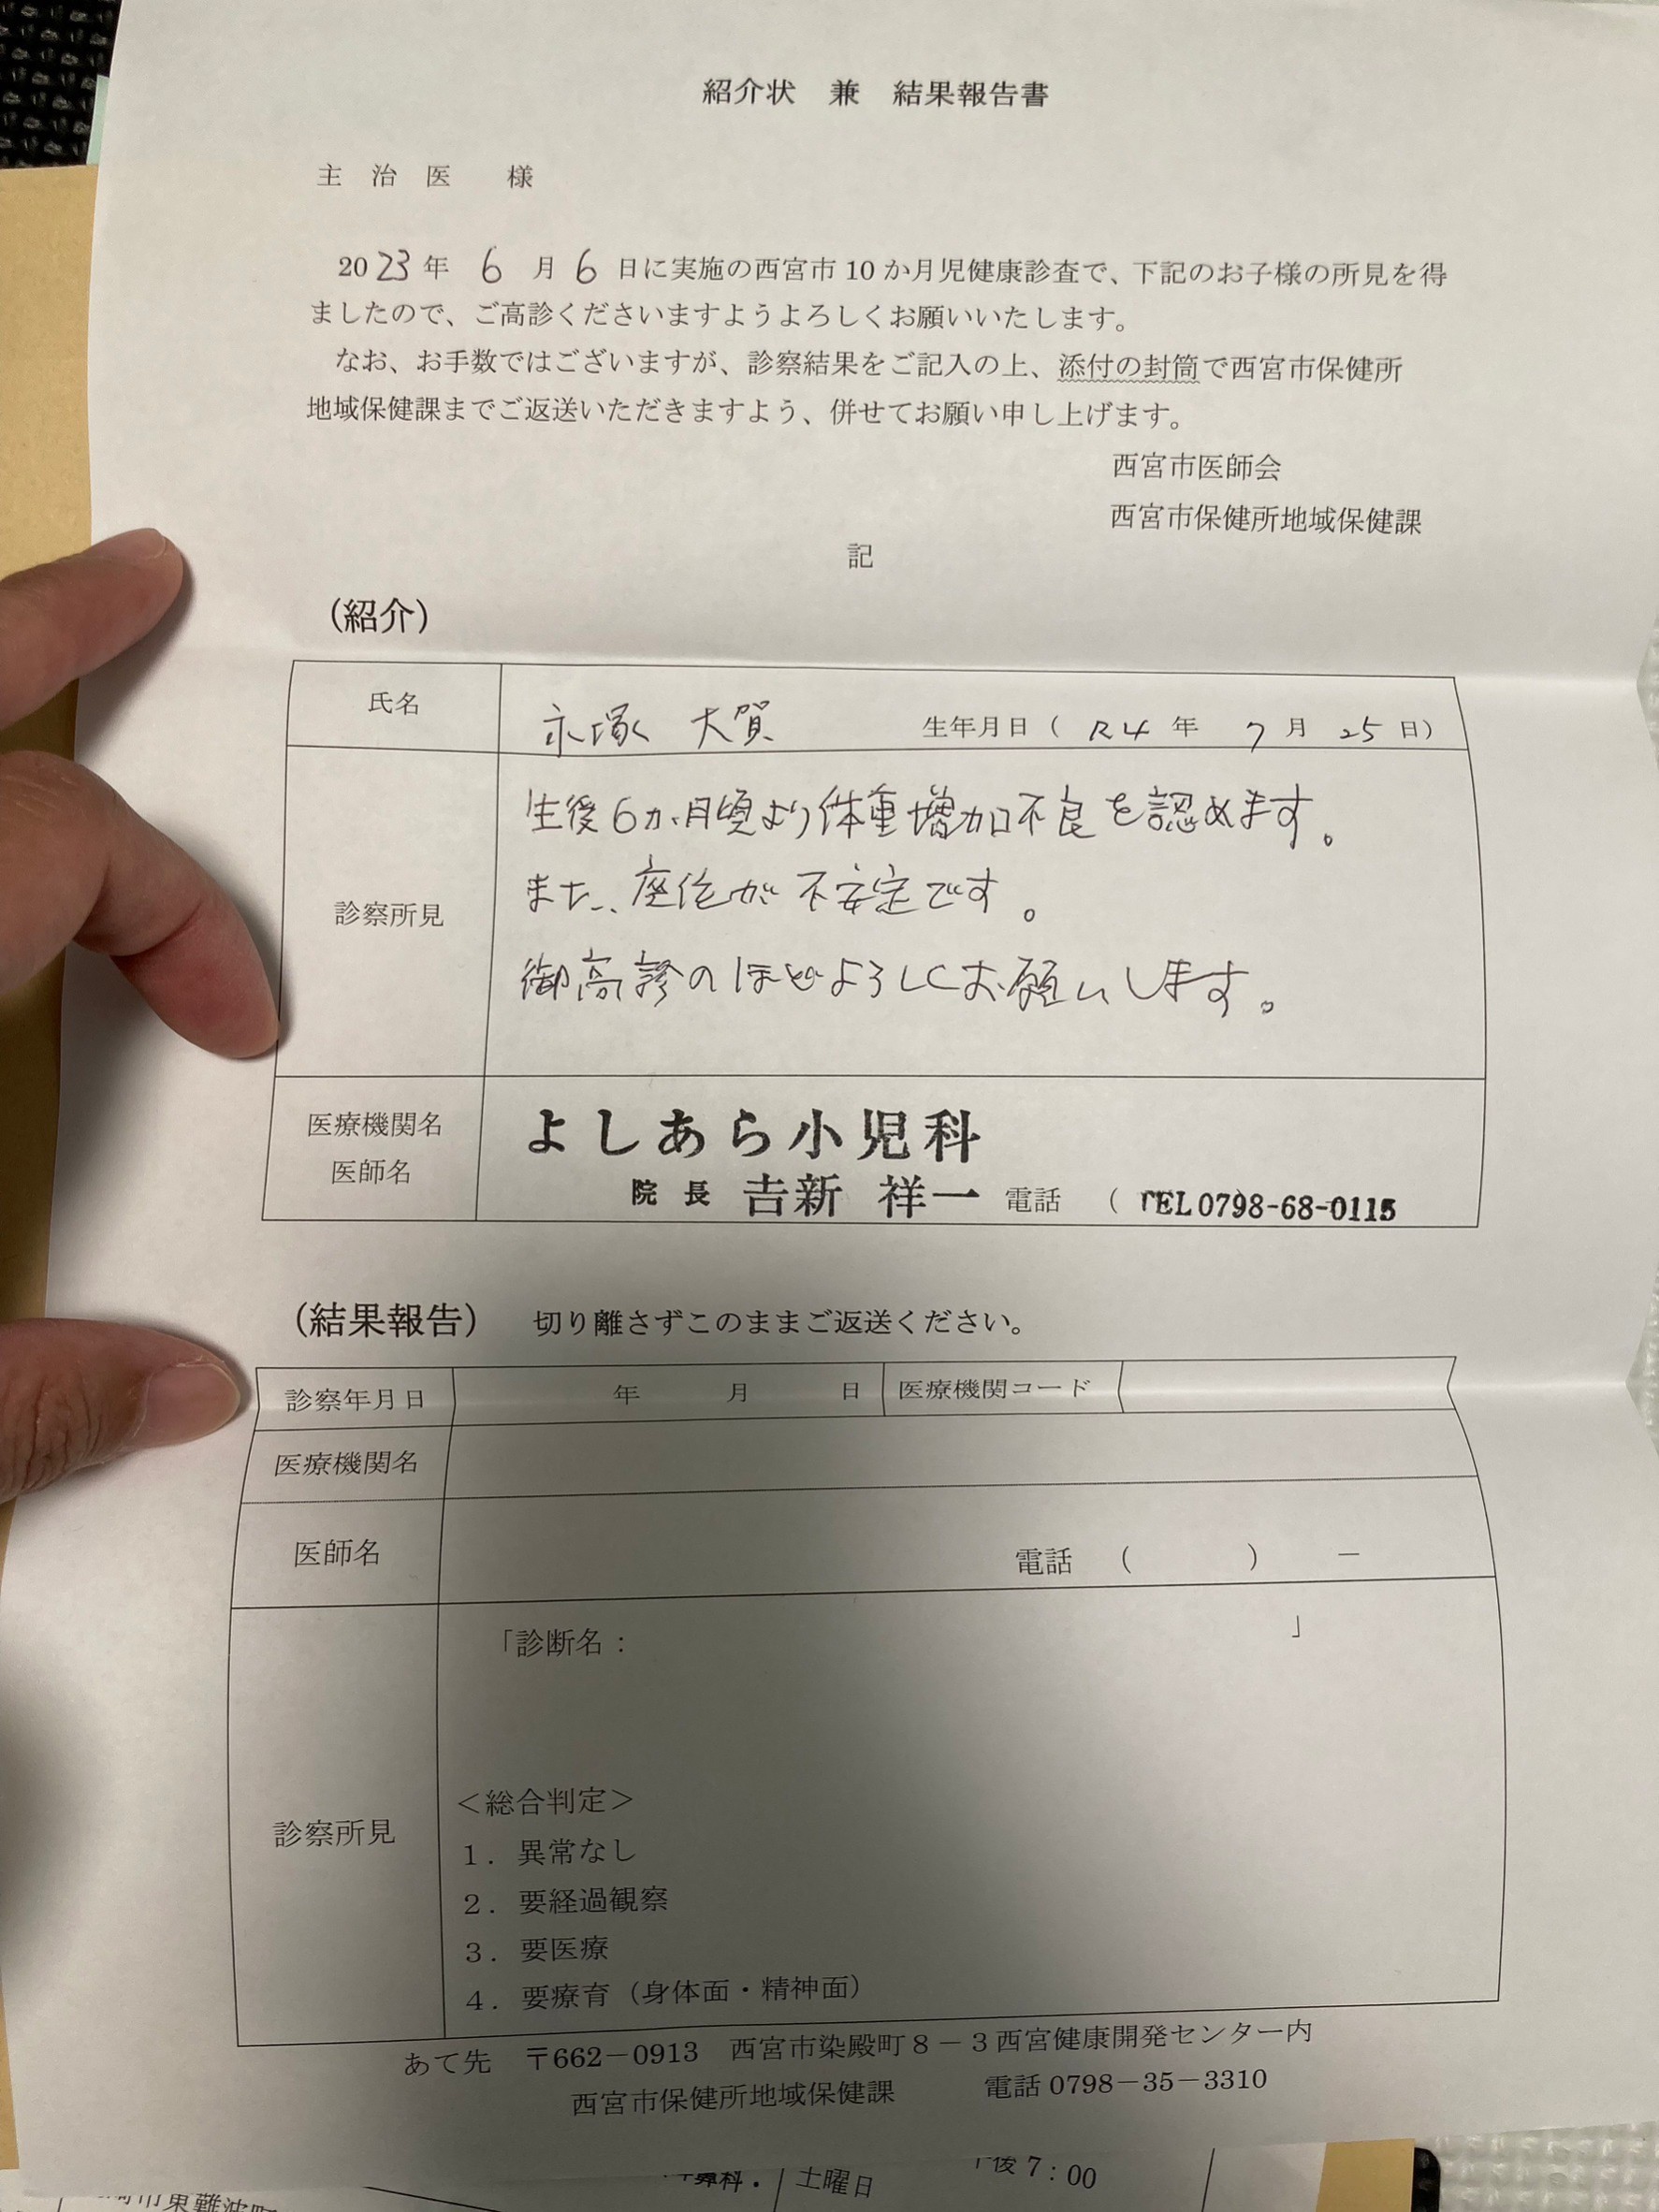 紹介状　兼　結果報告書
主　治　医　　様
2023年　6　月　6　日に実施の西宮市10か月児健康診査で、下記のお子様の所見を得
ましたので、ご高診くださいますようよろしくお願いいたします。
なお、お手数ではございますが、診察結果をご記入の上、添付の封筒で西宮市保健所
地域保健課までご返送いただきますよう、併せてお願い申し上げます。
西宮市医師会
西宮市保健所地域保健課
記
（紹介）
氏名　永塚　大賀　生年月日（　R4　年　7　月　25　日）
生後6カ月頃より体重増加不良を認めます。
また、座位が不安定です。
診察所見
御高診のほどよろしくお願いします。
医療機関名　よしあら小児科
医師名　院長　吉新　祥一　電話　（　TEL0798-68-0115
（結果報告）　切り離さずこのままご返送ください。
診察年月日　年　月　日　医療機関コード
医療機関名
医師名　電話　（　　　）　－
「診断名：　　　」
＜総合判定＞
診察所見
1．異常なし
2．要経過観察
3．要医療
4．要療育（身体面・精神面）
あて先　〒662－0913　西宮市染殿町8－3西宮健康開発センター内
西宮市保健所地域保健課　電話0798－35－3310
科．　土曜日　後7：00
市東難波町